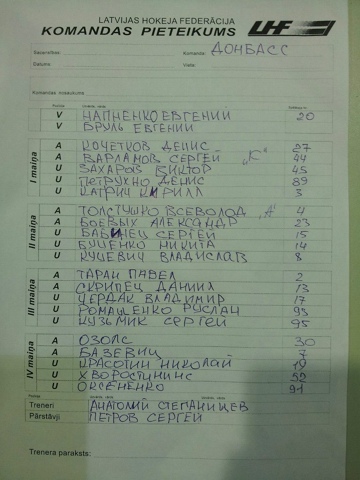 LATVIJAS HOKEJA FEDERĀCIJA
KOMANDAS PIETEIKUMS LHF
Sacensības: Komanda: ДОНБАСС
Datums: Vieta:
Komandas nosaukums
V НАПНЕНКО ЕВГЕНИЙ 20
V ВРУЛЬ ЕВГЕНИЙ
I maiņa
A КОЧЕТКОВ ДЕНИС 27
A ВАРЛАМОВ СЕРГЕЙ „К" 44
U ЗАХАРОВ ВИКТОР 45
U ПЕТРУХНО ДЕНИС 89
U КАТРИЧ КИРИЛЛ 3
II maiņa
A ТОЛСТУШКО ВСЕВОЛОД „А" 4
A БОЕВЫХ АЛЕКСАНДР 23
U БАБИНЕЦ СЕРГЕЙ 15
U БУЦЕНКО НИКИТА 14
U КУЦЕВИЧ ВЛАДИСЛАВ 8
III maiņa
A ТАРАН ПАВЕЛ 2
A СКРИПЕЦ ДАНИИЛ 13
U ЧЕРДАК ВЛАДИМИР 17
U РОМАЩЕНКО РУСЛАН 93
U КУЗЬМИК СЕРГЕЙ 95
IV maiņa
A ОЗОЛС 30
A БАЗЕВИЦ 7
U КРАСОТИН НИКОЛАЙ 19
U ХВОРОСТИНИНС 52
U ОКСЕНЕНКО 91
Treneri АНАТОЛИЙ СТЕПАНИЩЕВ
Pārstāvji ПЕТРОВ СЕРГЕЙ
Trenera paraksts: